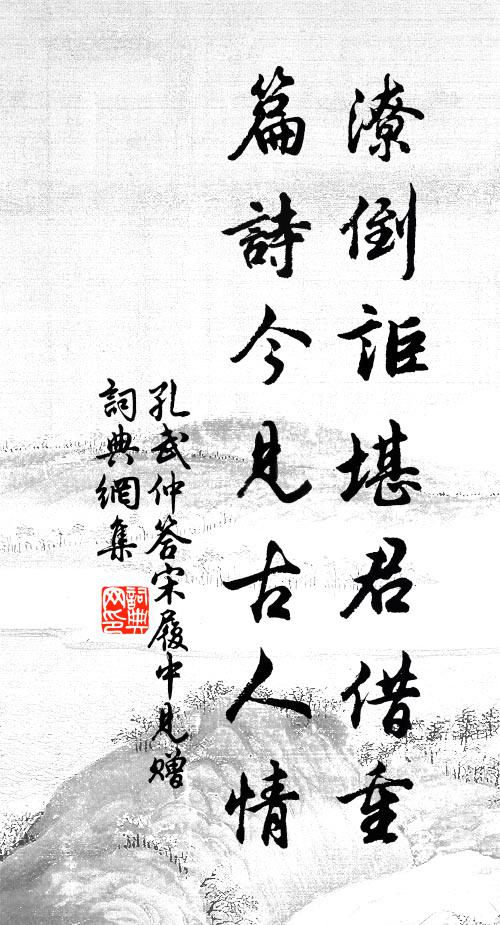 潦倒詎堪君借重
篇詩今見古人情
孔武仲答宋履中見贈
詞典網集
詞典
网印